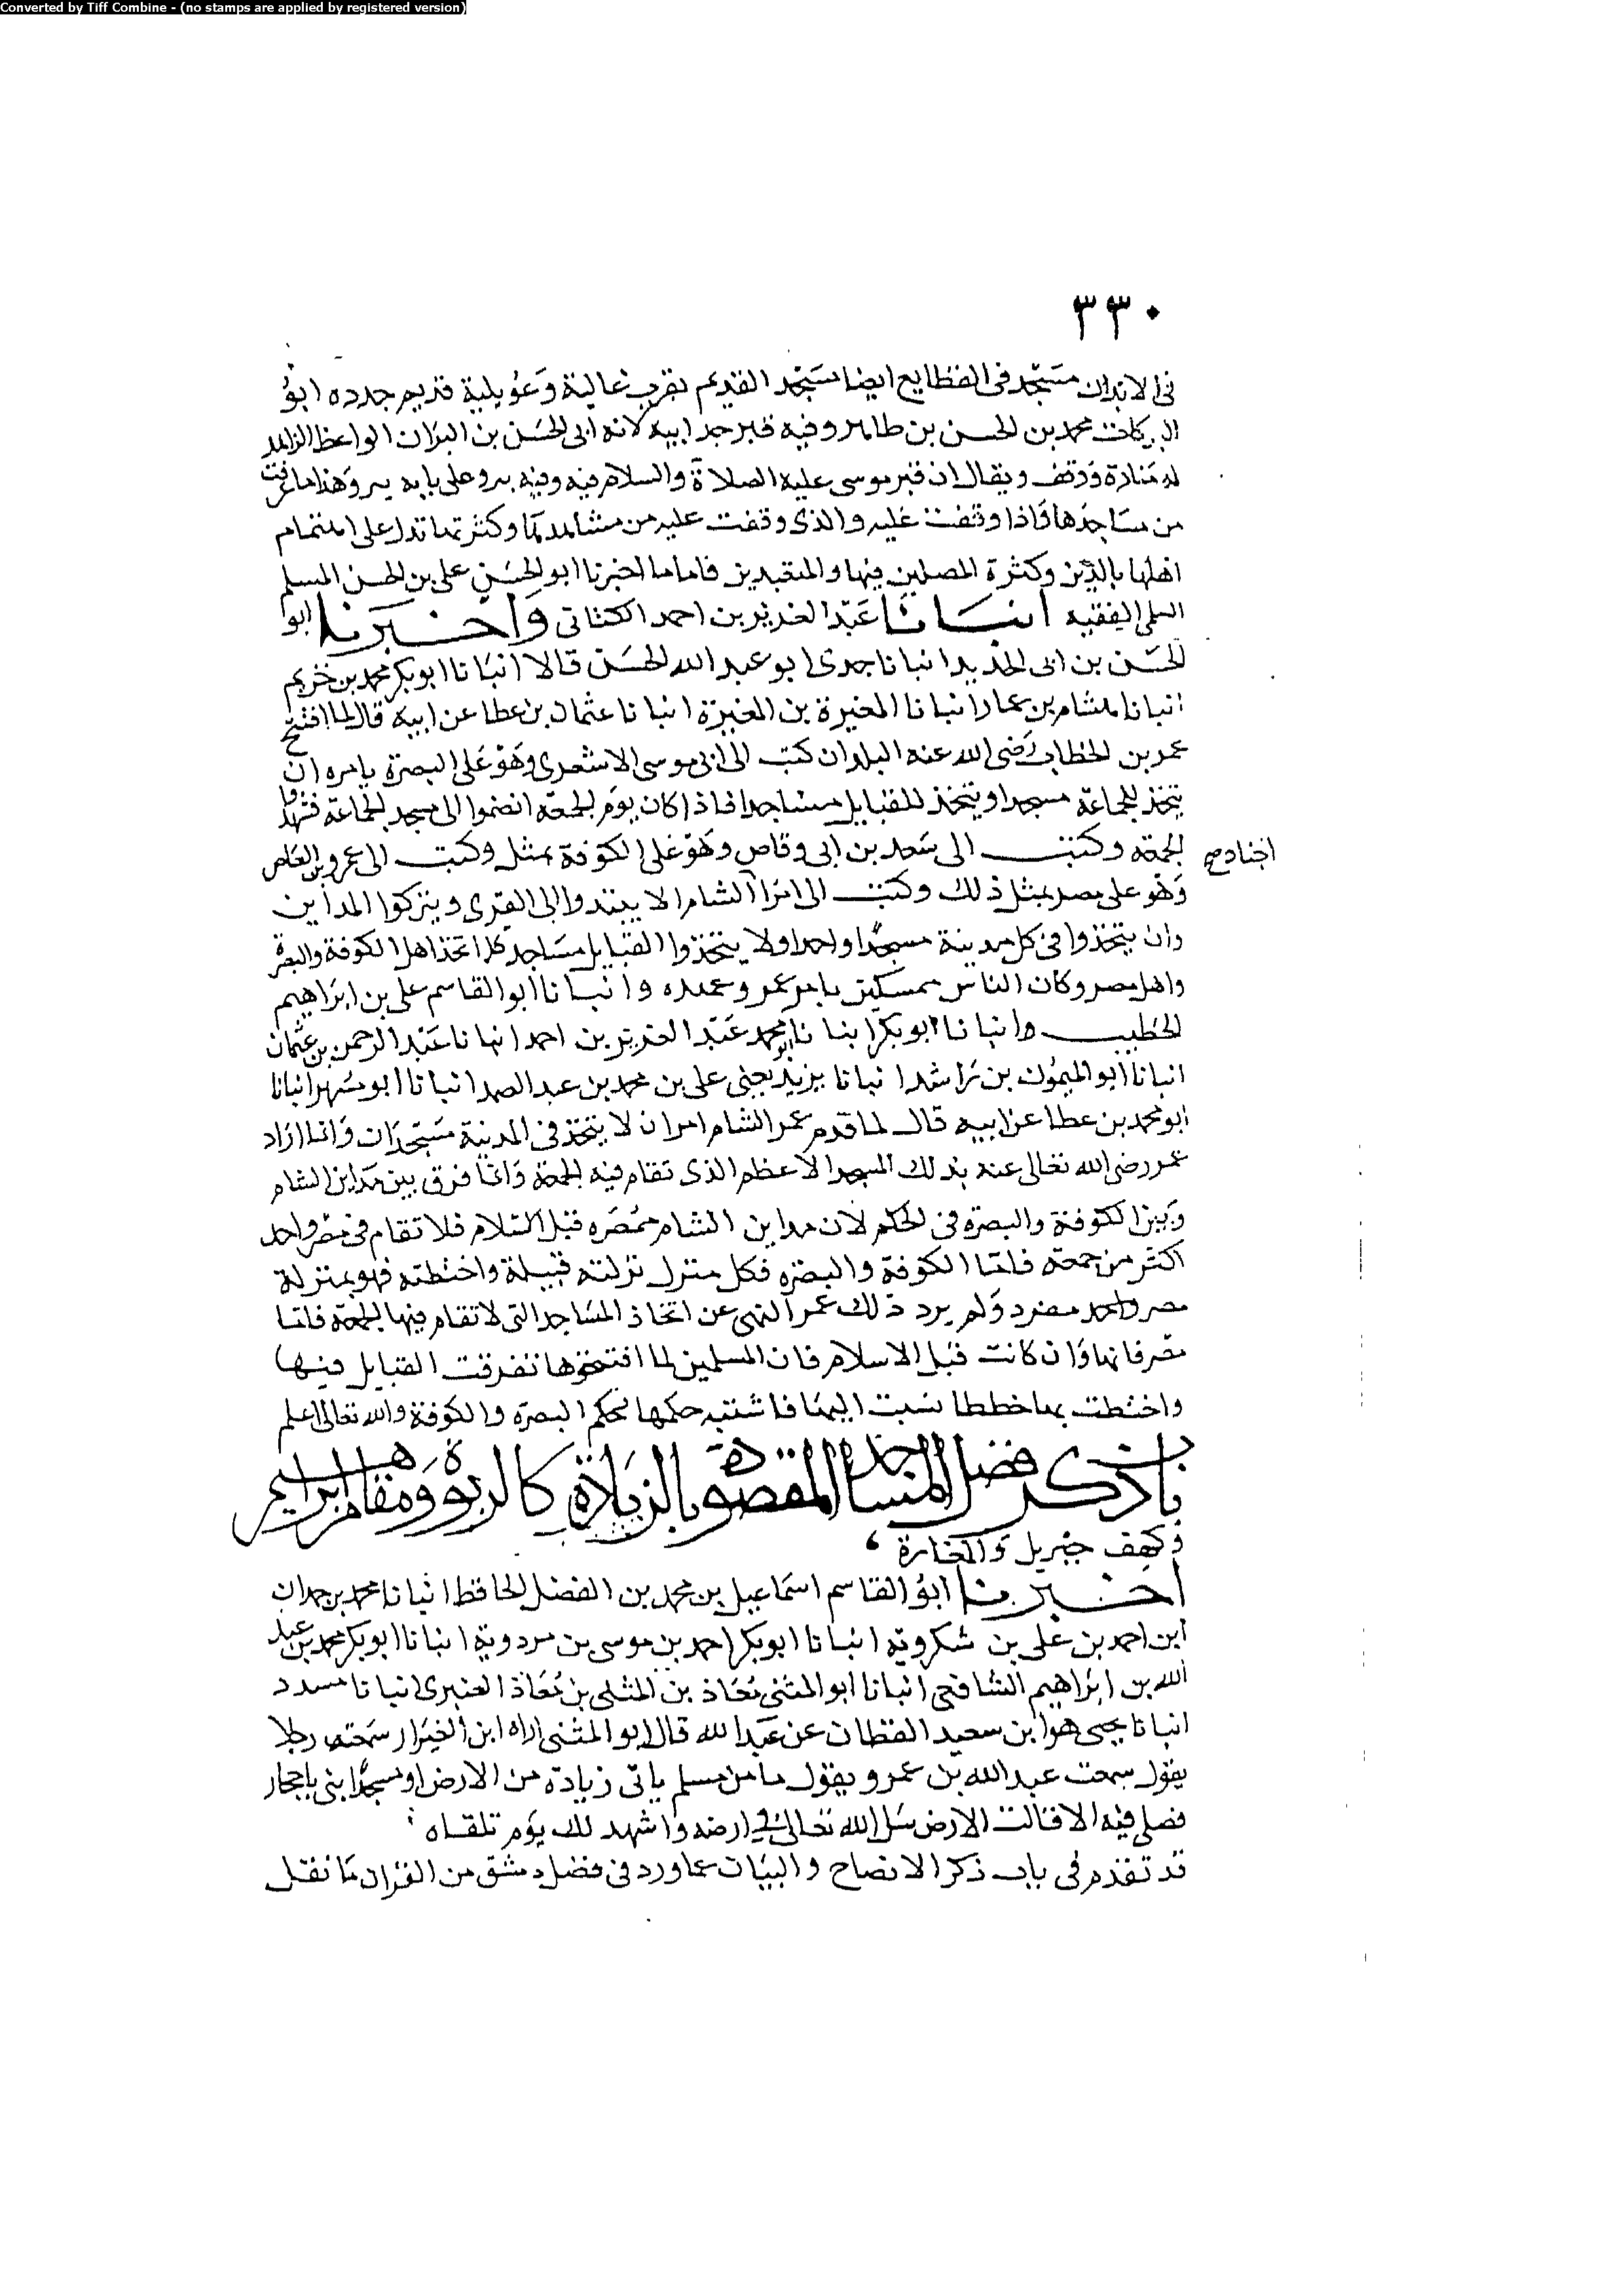 Converted by Tiff Combine - (no stamps are applied by registered version)
٣٣٠
في الابدان مسجد في القطايع ايضا مسجد القديم بقرب عالية وعويلية قديم جدده ابو
البركات محمد بن الحسن بن طاهر وفيه قبر جد ابيه لامه ابي الحسن بن البران الواعظ الزاهد
له منارة ووقف ويقال ان قبر موسى عليه الصلاة والسلام فيه وفيه بير وعلى بابه بير وهذا ما عرفت
من مساجدها فاذا وقفت عليه والذي وقفت عليه من مشاهدها وكثرتها تدل على اهتمام
اهلها بالدين وكثرة المصلين فيها والمتعبدين فاما ما اخبرنا ابو الحسن علي بن الحسن المسلم
السلمي الفقيه انبانا عبد العزيز بن احمد الكتاني واخبرنا ابو
الحسن بن ابي الحديد انبانا جدي ابو عبد الله الحسن قالا انبانا ابو بكر محمد بن خريم
انبانا هشام بن عمار انبانا المغيرة بن المغيرة انبانا عثمان بن عطا عن ابيه قال لما افتتح
عمر بن الخطاب رضى الله عنه البلدان كتب الى ابي موسى الاشعري وهو على البصرة يامره ان
يتخذ للجماعة مسجدا ويتخذ للقبايل مساجدا فاذا كان يوم الجمعة انضموا الى مسجد الجماعة فشهدوا
الجمعة وكتب الى سعد بن ابي وقاص وهو على الكوفة بمثل وكتب الى عمرو بن العاص
اجناد صح
وهو على مصر بمثل ذلك وكتب الى امرا الشام الا يبتدوا الى القرى ويتركوا المداين
وان يتخذوا في كل مدينة مسجدا واحدا ولا يتخذوا القبايل مساجد كما اتخذ اهل الكوفة والبصرة
واهل مصر وكان الناس متمسكين بامر عمر وعهده وانبانا ابو القاسم علي بن ابراهيم
الخطيب وانبانا ابو بكر انبانا ابو محمد عبد العزيز بن احمد انبانا عبد الرحمن بن عثمان
انبانا ابو الميمون بن راشد انبانا يزيد يعني علي بن محمد بن عبد الصمد انبانا ابو مسهر انبانا
ابو محمد بن عطا عن ابيه قال لما قدم عمر الشام امر ان لا يتخذ في المدينة مسجدان وانما اراد
عمر رضى الله تعالى عنه بذلك المسجد الاعظم الذي تقام فيه الجمعة وانما فرق بين مداين الشام
وبين الكوفة والبصرة في الحكم لان مداين الشام ممصره قبل السلام فلا تقام في مصر واحد
اكثر من جمعة فاما الكوفة والبصره فكل منزل نزلته قبيلة واختطته فهو بمنزلة
مصر واحد مفرد ولم يرد ذلك عمر النهي عن اتخاذ المساجد التي لا تقام فيها الجمعة فاما
مصر فانها وان كانت قبل الاسلام فان المسلمين لما افتتحوها تفرقت القبايل فيها
واختطت بها خططا نسبت اليها فاشتبه حكمها بحكم البصرة والكوفة والله تعالى اعلم
باب ذكر فضل المساجد المقصودة بالزيارة كالربوة ومقام ابراهيم
وكهف جبريل والمغارة
اخبرنا ابو القاسم اسماعيل بن محمد بن الفضل الحافظ انبانا محمد بن حمدان
ابن احمد بن علي بن شكرويه انبانا ابو بكر احمد بن موسى بن مردوية انبانا ابو بكر محمد بن عبد
الله بن ابراهيم الشافعي انبانا ابو المثنى معاذ بن المثنى بن معاذ العنبري انبانا مسدد
انبانا يحيى هو ابن سعيد القطان عن عبد الله قال ابو المثنى اراه ابن العيزار سمعت رجلا
يقول سمعت عبد الله بن عمرو يقول ما من مسلم ياتي زيادة من الارض او مسجدا بني باحجار
فصلى فيه الا قالت الارض سل الله تعالى في ارضه واشهد لك يوم تلقاه
قد تقدم في باب ذكر الايضاح والبيان عما ورد في فضل دمشق من القران ما نقل